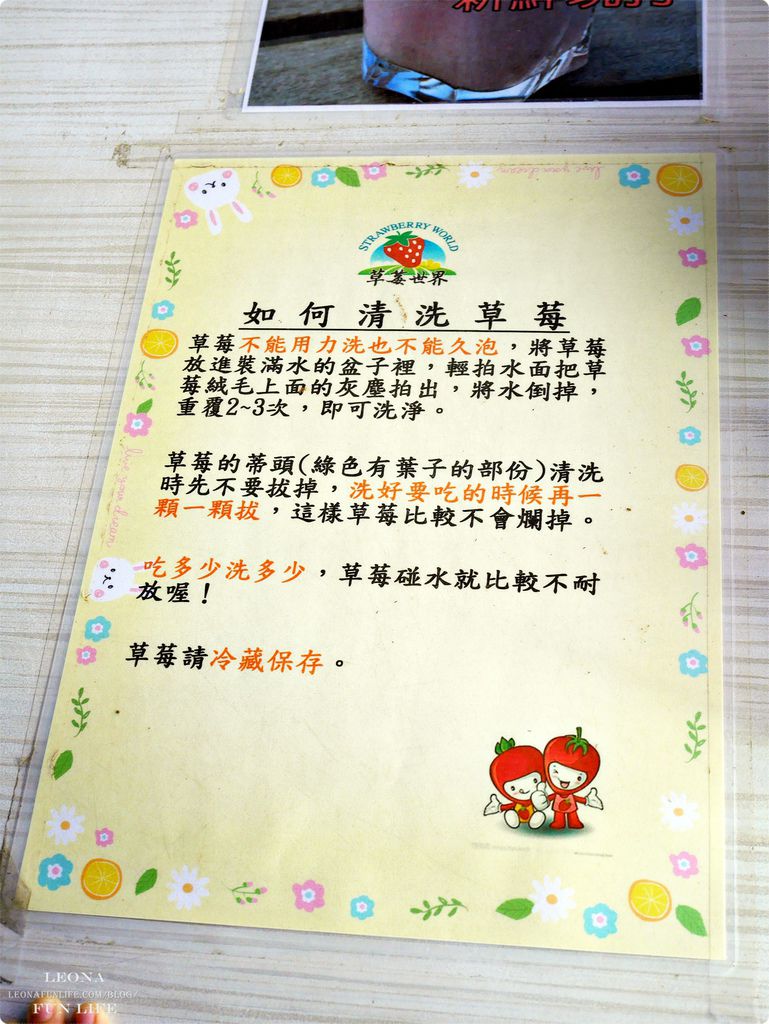 STRAWBERRY WORLD
草莓世界
如何清洗草莓
草莓不能用力洗也不能久泡，將草莓
放進裝滿水的盆子裡，輕拍水面把草
莓絨毛上面的灰塵拍出，將水倒掉，
重覆2~3次，即可洗淨。
草莓的蒂頭(綠色有葉子的部份)清洗
時先不要拔掉，洗好要吃的時候再一
顆一顆拔，這樣草莓比較不會爛掉。
吃多少洗多少，草莓碰水就比較不耐
放喔！
草莓請冷藏保存。
LEONA
LEONAFUNLIFE.COM/BLOG/
FUN LIFE